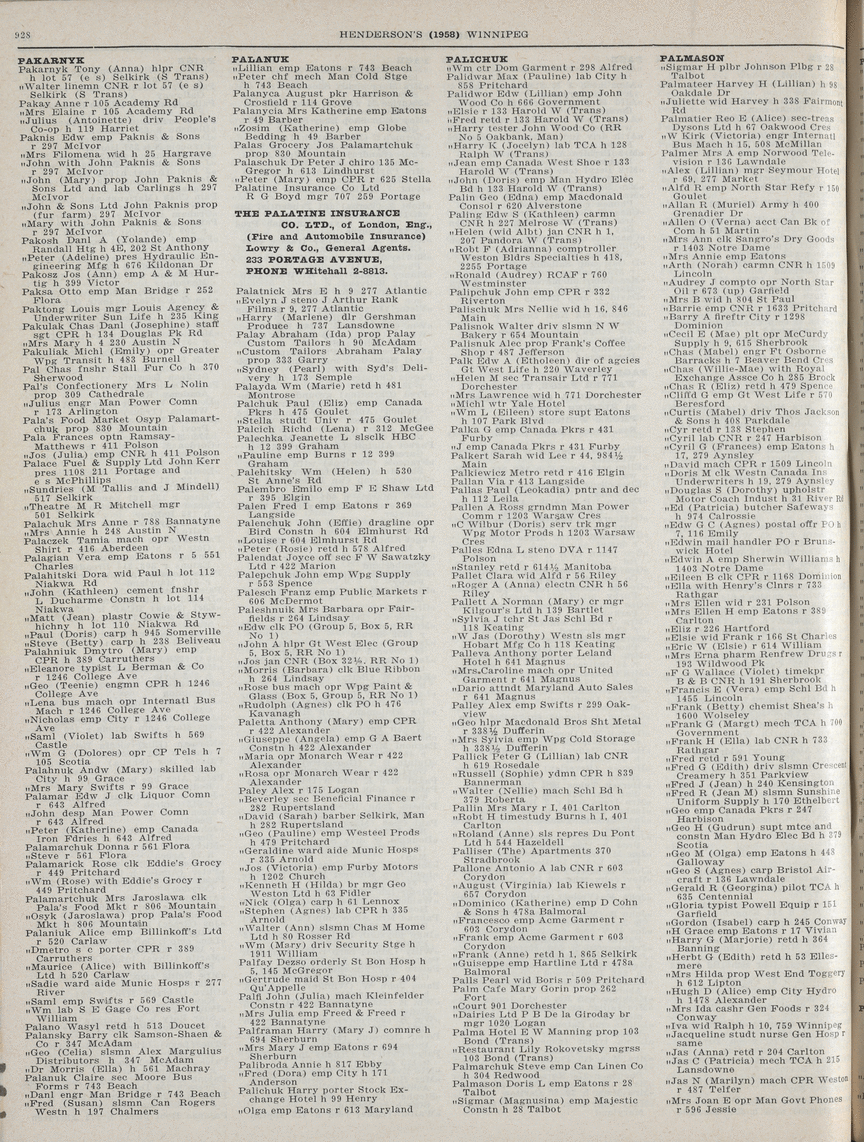 928
HENDERSON'S (1958) WINNIPEG
PAKARNYK
Pakarnyk Tony (Anna) hlpr CNR
h lot 57 (e s) Selkirk (S Trans)
„Walter linemn CNR r lot 57 (e s)
Selkirk (S Trans)
Pakay Anne r 105 Academy Rd
„Mrs Elaine r 105 Academy Rd
„Julius (Antoinette) driv People's
Co-op h 119 Harriet
Paknis Edw emp Paknis & Sons
r 297 McIvor
„Mrs Filomena wid h 25 Hargrave
„John with John Paknis & Sons
r 297 McIvor
„John (Mary) prop John Paknis &
Sons Ltd and lab Carlings h 297
McIvor
„John & Sons Ltd John Paknis prop
(fur farm) 297 McIvor
„Mary with John Paknis & Sons
r 297 McIvor
Pakosh Danl A (Yolande) emp
Randall Htg h 4E, 202 St Anthony
„Peter (Adeline) pres Hydraulic En-
gineering Mfg h 676 Kildonan Dr
Pakosz Jos (Ann) emp A & M Hur-
tig h 399 Victor
Paksa Otto emp Man Bridge r 252
Flora
Paktong Louis mgr Louis Agency &
Underwriter Sun Life h 235 King
Pakulak Chas Danl (Josephine) staff
sgt CPR h 134 Douglas Pk Rd
„Mrs Mary h 4 230 Austin N
Pakuliak Michl (Emily) opr Greater
Wpg Transit h 483 Burnell
Pal Chas fnshr Stall Fur Co h 370
Sherwood
Pal's Confectionery Mrs L Nolin
prop 309 Cathedrale
„Julius engr Man Power Comn
r 173 Arlington
Pala's Food Market Osyp Palamart-
chuk prop 830 Mountain
Pala Frances optn Ramsay-
Matthews r 411 Polson
„Jos (Julia) emp CNR h 411 Polson
Palace Fuel & Supply Ltd John Kerr
pres 1108 211 Portage and
e s McPhillips
„Sundries (M Tallis and J Mindell)
517 Selkirk
„Theatre M R Mitchell mgr
501 Selkirk
Palachuk Mrs Anne r 788 Bannatyne
„Mrs Annie h 248 Austin N
Palaczek Tamia mach opr Westn
Shirt r 416 Aberdeen
Palagian Vera emp Eatons r 5 551
Charles
Palahitski Dora wid Paul h lot 112
Niakwa Rd
„John (Kathleen) cement fnshr
L Ducharme Constn h lot 114
Niakwa
„Matt (Jean) plastr Cowie & Styw-
hichny h lot 110 Niakwa Rd
„Paul (Doris) carp h 945 Somerville
„Steve (Betty) carp h 238 Beliveau
Palahniuk Dmytro (Mary) emp
CPR h 389 Carruthers
„Eleanore typist L Berman & Co
r 1246 College Ave
„Geo (Teenie) engmn CPR h 1246
College Ave
„Lena bus mach opr Internatl Bus
Mach r 1246 College Ave
„Nicholas emp City r 1246 College
Ave
„Saml (Violet) lab Swifts h 569
Castle
„Wm G (Dolores) opr CP Tels h 7
105 Scotia
Palahnuk Andw (Mary) skilled lab
City h 99 Grace
„Mrs Mary Swifts r 99 Grace
Palamar Edw J clk Liquor Comn
r 643 Alfred
„John desp Man Power Comn
r 643 Alfred
„Peter (Katherine) emp Canada
Iron Fdries h 643 Alfred
Palamarchuk Donna r 561 Flora
„Steve r 561 Flora
Palamarick Rose clk Eddie's Grocy
r 449 Pritchard
„Wm (Rose) with Eddie's Grocy r
449 Pritchard
Palamartchuk Mrs Jaroslawa clk
Pala's Food Mkt r 806 Mountain
„Osyk (Jaroslawa) prop Pala's Food
Mkt h 806 Mountain
Palaniuk Alice emp Billinkoff's Ltd
r 520 Carlaw
„Dmetro s c porter CPR r 389
Carruthers
„Maurice (Alice) with Billinkoff's
Ltd h 520 Carlaw
„Sadie ward aide Munic Hosps r 277
River
„Saml emp Swifts r 569 Castle
„Wm lab S E Gage Co res Fort
William
Palano Wasyl retd h 513 Doucet
Palansky Barry clk Samson-Shaen &
Co r 347 McAdam
„Geo (Celia) slsmn Alex Margulius
Distributors h 347 McAdam
„Dr Morris (Ella) h 561 Machray
Palanuk Claire sec Moore Bus
Forms r 743 Beach
„Danl engr Man Bridge r 743 Beach
„Fred (Susan) slsmn Can Rogers
Westn h 197 Chalmers
PALANUK
„Lillian emp Eatons r 743 Beach
„Peter chf mech Man Cold Stge
h 743 Beach
Palanyca August pkr Harrison &
Crosfield r 114 Grove
Palanycia Mrs Katherine emp Eatons
r 49 Barber
„Zosim (Katherine) emp Globe
Bedding h 49 Barber
Palas Grocery Jos Palamartchuk
prop 830 Mountain
Palaschuk Dr Peter J chiro 135 Mc-
Gregor h 613 Lindhurst
„Peter (Mary) emp CPR r 625 Stella
Palatine Insurance Co Ltd
R G Boyd mgr 707 259 Portage
THE PALATINE INSURANCE
CO. LTD., of London, Eng.,
(Fire and Automobile Insurance)
Lowry & Co., General Agents.
233 PORTAGE AVENUE,
PHONE WHitehall 2-8813.
Palatnick Mrs E h 9 277 Atlantic
„Evelyn J steno J Arthur Rank
Films r 9, 277 Atlantic
„Harry (Marlene) dir Gershman
Produce h 737 Lansdowne
Palay Abraham (Ida) prop Palay
Custom Tailors h 90 McAdam
„Custom Tailors Abraham Palay
prop 333 Garry
„Sydney (Pearl) with Syd's Deli-
very h 173 Semple
Palayda Wm (Marie) retd h 481
Montrose
Palchuk Paul (Eliz) emp Canada
Pkrs h 475 Goulet
„Stella studt Univ r 475 Goulet
Palcich Richd (Lena) r 312 McGee
Palechka Jeanette L slsclk HBC
h 12 399 Graham
„Pauline emp Burns r 12 399
Graham
Palehitsky Wm (Helen) h 530
St Anne's Rd
Palembro Emilo emp F E Shaw Ltd
r 395 Elgin
Palen Fred I emp Eatons r 369
Langside
Palenchuk John (Effie) dragline opr
Bird Constn h 604 Elmhurst Rd
„Louise r 604 Elmhurst Rd
„Peter (Rosie) retd h 578 Alfred
Palendat Joyce off sec F W Sawatzky
Ltd r 422 Marion
Palepchuk John emp Wpg Supply
r 553 Spence
Palesch Franz emp Public Markets r
606 McDermot
Paleshnuik Mrs Barbara opr Fair-
fields r 264 Lindsay
„Edw clk PO (Group 5, Box 5, RR
No 1)
„John A hlpr Gt West Elec (Group
5, Box 5, RR No 1)
„Jos jan CNR (Box 32¼, RR No 1)
„Morris (Barbara) clk Blue Ribbon
h 264 Lindsay
„Rose bus mach opr Wpg Paint &
Glass (Box 5, Group 5, RR No 1)
„Rudolph (Agnes) clk PO h 476
Kavanagh
Paletta Anthony (Mary) emp CPR
r 422 Alexander
„Giuseppe (Angela) emp G A Baert
Constn h 422 Alexander
„Maria opr Monarch Wear r 422
Alexander
„Rosa opr Monarch Wear r 422
Alexander
Paley Alex r 175 Logan
„Beverley sec Beneficial Finance r
282 Rupertsland
„David (Sarah) barber Selkirk, Man
h 282 Rupertsland
„Geo (Pauline) emp Westeel Prods
h 479 Pritchard
„Geraldine ward aide Munic Hosps
r 335 Arnold
„Jos (Victoria) emp Furby Motors
h 1202 Church
„Kenneth H (Hilda) br mgr Geo
Weston Ltd h 63 Fidler
„Nick (Olga) carp h 61 Lennox
„Stephen (Agnes) lab CPR h 335
Arnold
„Walter (Ann) slsmn Chas M Home
Ltd h 80 Rosser Rd
„Wm (Mary) driv Security Stge h
1911 William
Palfay Dezso orderly St Bon Hosp h
5, 145 McGregor
„Gertrude maid St Bon Hosp r 404
Qu'Appelle
Palfi John (Julia) mach Kleinfelder
Constn r 422 Bannatyne
„Mrs Julia emp Freed & Freed r
422 Bannatyne
Palframan Harry (Mary J) comnre h
694 Sherburn
„Mrs Mary J emp Eatons r 694
Sherburn
Palibroda Annie h 817 Ebby
„Fred (Dora) emp City h 171
Anderson
Palichuk Harry porter Stock Ex-
change Hotel h 99 Henry
„Olga emp Eatons r 613 Maryland
PALICHUK
„Wm ctr Dom Garment r 298 Alfred
Palidwar Max (Pauline) lab City h
858 Pritchard
Palidwor Edw (Lillian) emp John
Wood Co h 666 Government
„Elsie r 133 Harold W (Trans)
„Fred retd r 133 Harold W (Trans)
„Harry tester John Wood Co (RR
No 5 Oakbank, Man)
„Harry K (Jocelyn) lab TCA h 128
Ralph W (Trans)
„Jean emp Canada West Shoe r 133
Harold W (Trans)
„John (Doris) emp Man Hydro Elec
Bd h 133 Harold W (Trans)
Palin Geo (Edna) emp Macdonald
Consol r 620 Alverstone
Paling Edw S (Kathleen) carmn
CNR h 227 Melrose W (Trans)
„Helen (wid Albt) jan CNR h 1,
207 Pandora W (Trans)
„Robt F (Adrianna) comptroller
Weston Bldrs Specialties h 418,
2255 Portage
„Ronald (Audrey) RCAF r 760
Westminster
Palipchuk John emp CPR r 332
Riverton
Palischuk Mrs Nellie wid h 16, 846
Main
Palisnok Walter driv slsmn N W
Bakery r 654 Mountain
Palisnuk Alec prop Frank's Coffee
Shop r 487 Jefferson
Palk Edw A (Etholeen) dir of agcies
Gt West Life h 220 Waverley
„Helen M sec Transair Ltd r 771
Dorchester
„Mrs Lawrence wid h 771 Dorchester
„Michl wtr Yale Hotel
„Wm L (Eileen) store supt Eatons
h 107 Park Blvd
Palka G emp Canada Pkrs r 431
Furby
„J emp Canada Pkrs r 431 Furby
Palkert Sarah wid Lee r 44, 984½
Main
Palkiewicz Metro retd r 416 Elgin
Pallan Via r 413 Langside
Pallas Paul (Leokadia) pntr and dec
h 112 Leila
Pallen A Ross grndmn Man Power
Comm r 1203 Warsaw Cres
„C Wilbur (Doris) serv trk mgr
Wpg Motor Prods h 1203 Warsaw
Cres
Palles Edna L steno DVA r 1147
Polson
„Stanley retd r 614½ Manitoba
Pallet Clara wid Alfd r 56 Riley
„Roger A (Anna) electn CNR h 56
Riley
Pallett A Norman (Mary) cr mgr
Kilgour's Ltd h 139 Bartlet
„Sylvia J tchr St Jas Schl Bd r
118 Keating
„W Jas (Dorothy) Westn sls mgr
Hobart Mfg Co h 118 Keating
Palleva Anthony porter Leland
Hotel h 641 Magnus
„Mrs Caroline mach opr United
Garment r 641 Magnus
„Dario attndt Maryland Auto Sales
r 641 Magnus
Palley Alex emp Swifts r 299 Oak-
view
„Geo hlpr Macdonald Bros Sht Metal
r 338½ Dufferin
„Mrs Sylvia emp Wpg Cold Storage
h 338½ Dufferin
Pallick Peter G (Lillian) lab CNR
h 619 Rosedale
„Russell (Sophie) ydmn CPR h 839
Bannerman
„Walter (Nellie) mach Schl Bd h
379 Roberta
Pallin Mrs Mary r I, 401 Carlton
„Robt H timestudy Burns h I, 401
Carlton
„Roland (Anne) sls repres Du Pont
Ltd h 544 Hazeldell
Palliser (The) Apartments 370
Stradbrook
Pallone Antonio A lab CNR r 603
Corydon
„August (Virginia) lab Kiewels r
657 Corydon
„Dominico (Katherine) emp D Cohn
& Sons h 478a Balmoral
„Francesco emp Acme Garment r
603 Corydon
„Frank emp Acme Garment r 603
Corydon
„Frank (Anne) retd h 1, 865 Selkirk
„Guiseppe emp Hartline Ltd r 478a
Balmoral
Palls Pearl wid Boris r 509 Pritchard
Palm Cafe Mary Gorin prop 262
Fort
„Court 901 Dorchester
„Dairies Ltd P B De la Giroday br
mgr 1020 Logan
Palma Hotel E W Manning prop 103
Bond (Trans)
„Restaurant Lily Rokovetsky mgrss
103 Bond (Trans)
Palmarchuk Steve emp Can Linen Co
h 304 Redwood
Palmason Doris L emp Eatons r 28
Talbot
„Sigmar (Magnusina) emp Majestic
Constn h 28 Talbot
PALMASON
„Sigmar H plbr Johnson Plbg r 28
Talbot
Palmateer Harvey H (Lillian) h 98
Oakdale Dr
„Juliette wid Harvey h 338 Fairmont
Rd
Palmatier Reo E (Alice) sec-treas
Dysons Ltd h 67 Oakwood Cres
„W Kirk (Victoria) engr Internatl
Bus Mach h 15, 508 McMillan
Palmer Mrs A emp Norwood Tele-
vision r 136 Lawndale
„Alex (Lillian) mgr Seymour Hotel
r 69, 277 Market
„Alfd R emp North Star Refy r 150
Goulet
„Allan R (Muriel) Army h 400
Grenadier Dr
„Allen O (Verna) acct Can Bk of
Com h 51 Martin
„Mrs Ann clk Sangro's Dry Goods
r 1403 Notre Dame
„Mrs Annie emp Eatons
„Arth (Norah) carmn CNR h 1509
Lincoln
„Audrey J compto opr North Star
Oil r 673 (up) Garfield
„Mrs B wid h 804 St Paul
„Barrie emp CNR r 1633 Pritchard
„Barry A firefir City r 1298
Dominion
„Cecil E (Mae) plt opr McCurdy
Supply h 9, 615 Sherbrook
„Chas (Mabel) engr Ft Osborne
Barracks h 7 Beaver Bend Cres
„Chas (Willie-Mae) with Royal
Exchange Assce Co h 285 Brock
„Chas R (Eliz) retd h 479 Spence
„Cliffd G emp Gt West Life r 570
Beresford
„Curtis (Mabel) driv Thos Jackson
& Sons h 408 Parkdale
„Cyr retd r 138 Stephen
„Cyril lab CNR r 247 Harbison
„Cyril G (Frances) emp Eatons h
17, 279 Aynsley
„David mach CPR r 1509 Lincoln
„Doris M clk Westn Canada Ins
Underwriters h 19, 279 Aynsley
„Douglas S (Dorothy) upholstr
Motor Coach Indust h 31 River Rd
„Ed (Patricia) butcher Safeways
h 974 Calrossie
„Edw G C (Agnes) postal offr PO h
7, 116 Emily
„Edwin mail handler PO r Bruns-
wick Hotel
„Edwin A emp Sherwin Williams h
1403 Notre Dame
„Eileen B clk CPR r 1168 Dominion
„Ella with Henry's Clnrs r 733
Rathgar
„Mrs Ellen wid r 231 Polson
„Mrs Ellen H emp Eatons r 389
Carlton
„Eliz r 226 Hartford
„Elsie wid Frank r 166 St Charles
„Eric W (Elsie) r 614 William
„Mrs Erna pharm Renfrew Drugs r
193 Wildwood Pk
„F G Wallace (Violet) timekpr
B & B CNR h 191 Sherbrook
„Francis E (Vera) emp Schl Bd h
1455 Lincoln
„Frank (Betty) chemist Shea's h
1600 Wolseley
„Frank G (Margt) mech TCA h 700
Government
„Frank H (Ella) lab CNR h 733
Rathgar
„Fred retd r 591 Young
„Fred G (Edith) driv slsmn Crescent
Creamery h 351 Parkview
„Fred J (Jean) h 240 Kensington
„Fred R (Jean M) slsmn Sunshine
Uniform Supply h 170 Ethelbert
„Geo emp Canada Pkrs r 247
Harbison
„Geo H (Gudrun) supt mtce and
constn Man Hydro Elec Bd h 379
Scotia
„Geo M (Olga) emp Eatons h 448
Galloway
„Geo S (Agnes) carp Bristol Air-
craft r 136 Lawndale
„Gerald R (Georgina) pilot TCA h
635 Centennial
„Gloria typist Powell Equip r 151
Garfield
„Gordon (Isabel) carp h 245 Conway
„H Grace emp Eatons r 17 Vivian
„Harry G (Marjorie) retd h 364
Banning
„Herbt G (Edith) retd h 53 Elles-
mere
„Mrs Hilda prop West End Toggery
h 612 Lipton
„Hugh D (Alice) emp City Hydro
h 1478 Alexander
„Mrs Ida cashr Gen Foods r 324
Conway
„Iva wid Ralph h 10, 759 Winnipeg
„Jacqueline studt nurse Gen Hosp r
same
„Jas (Anna) retd r 204 Carlton
„Jas C (Patricia) mech TCA h 215
Lansdowne
„Jas N (Marilyn) mach CPR Weston
r 487 Telfer
„Mrs Joan E opr Man Govt Phones
r 596 Jessie